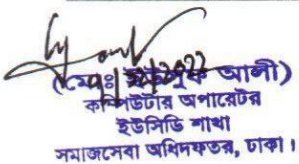 (মোঃ ইউসুফ আলী)
কম্পিউটার অপারেটর
ইউসিডি শাখা
সমাজসেবা অধিদফতর, ঢাকা।